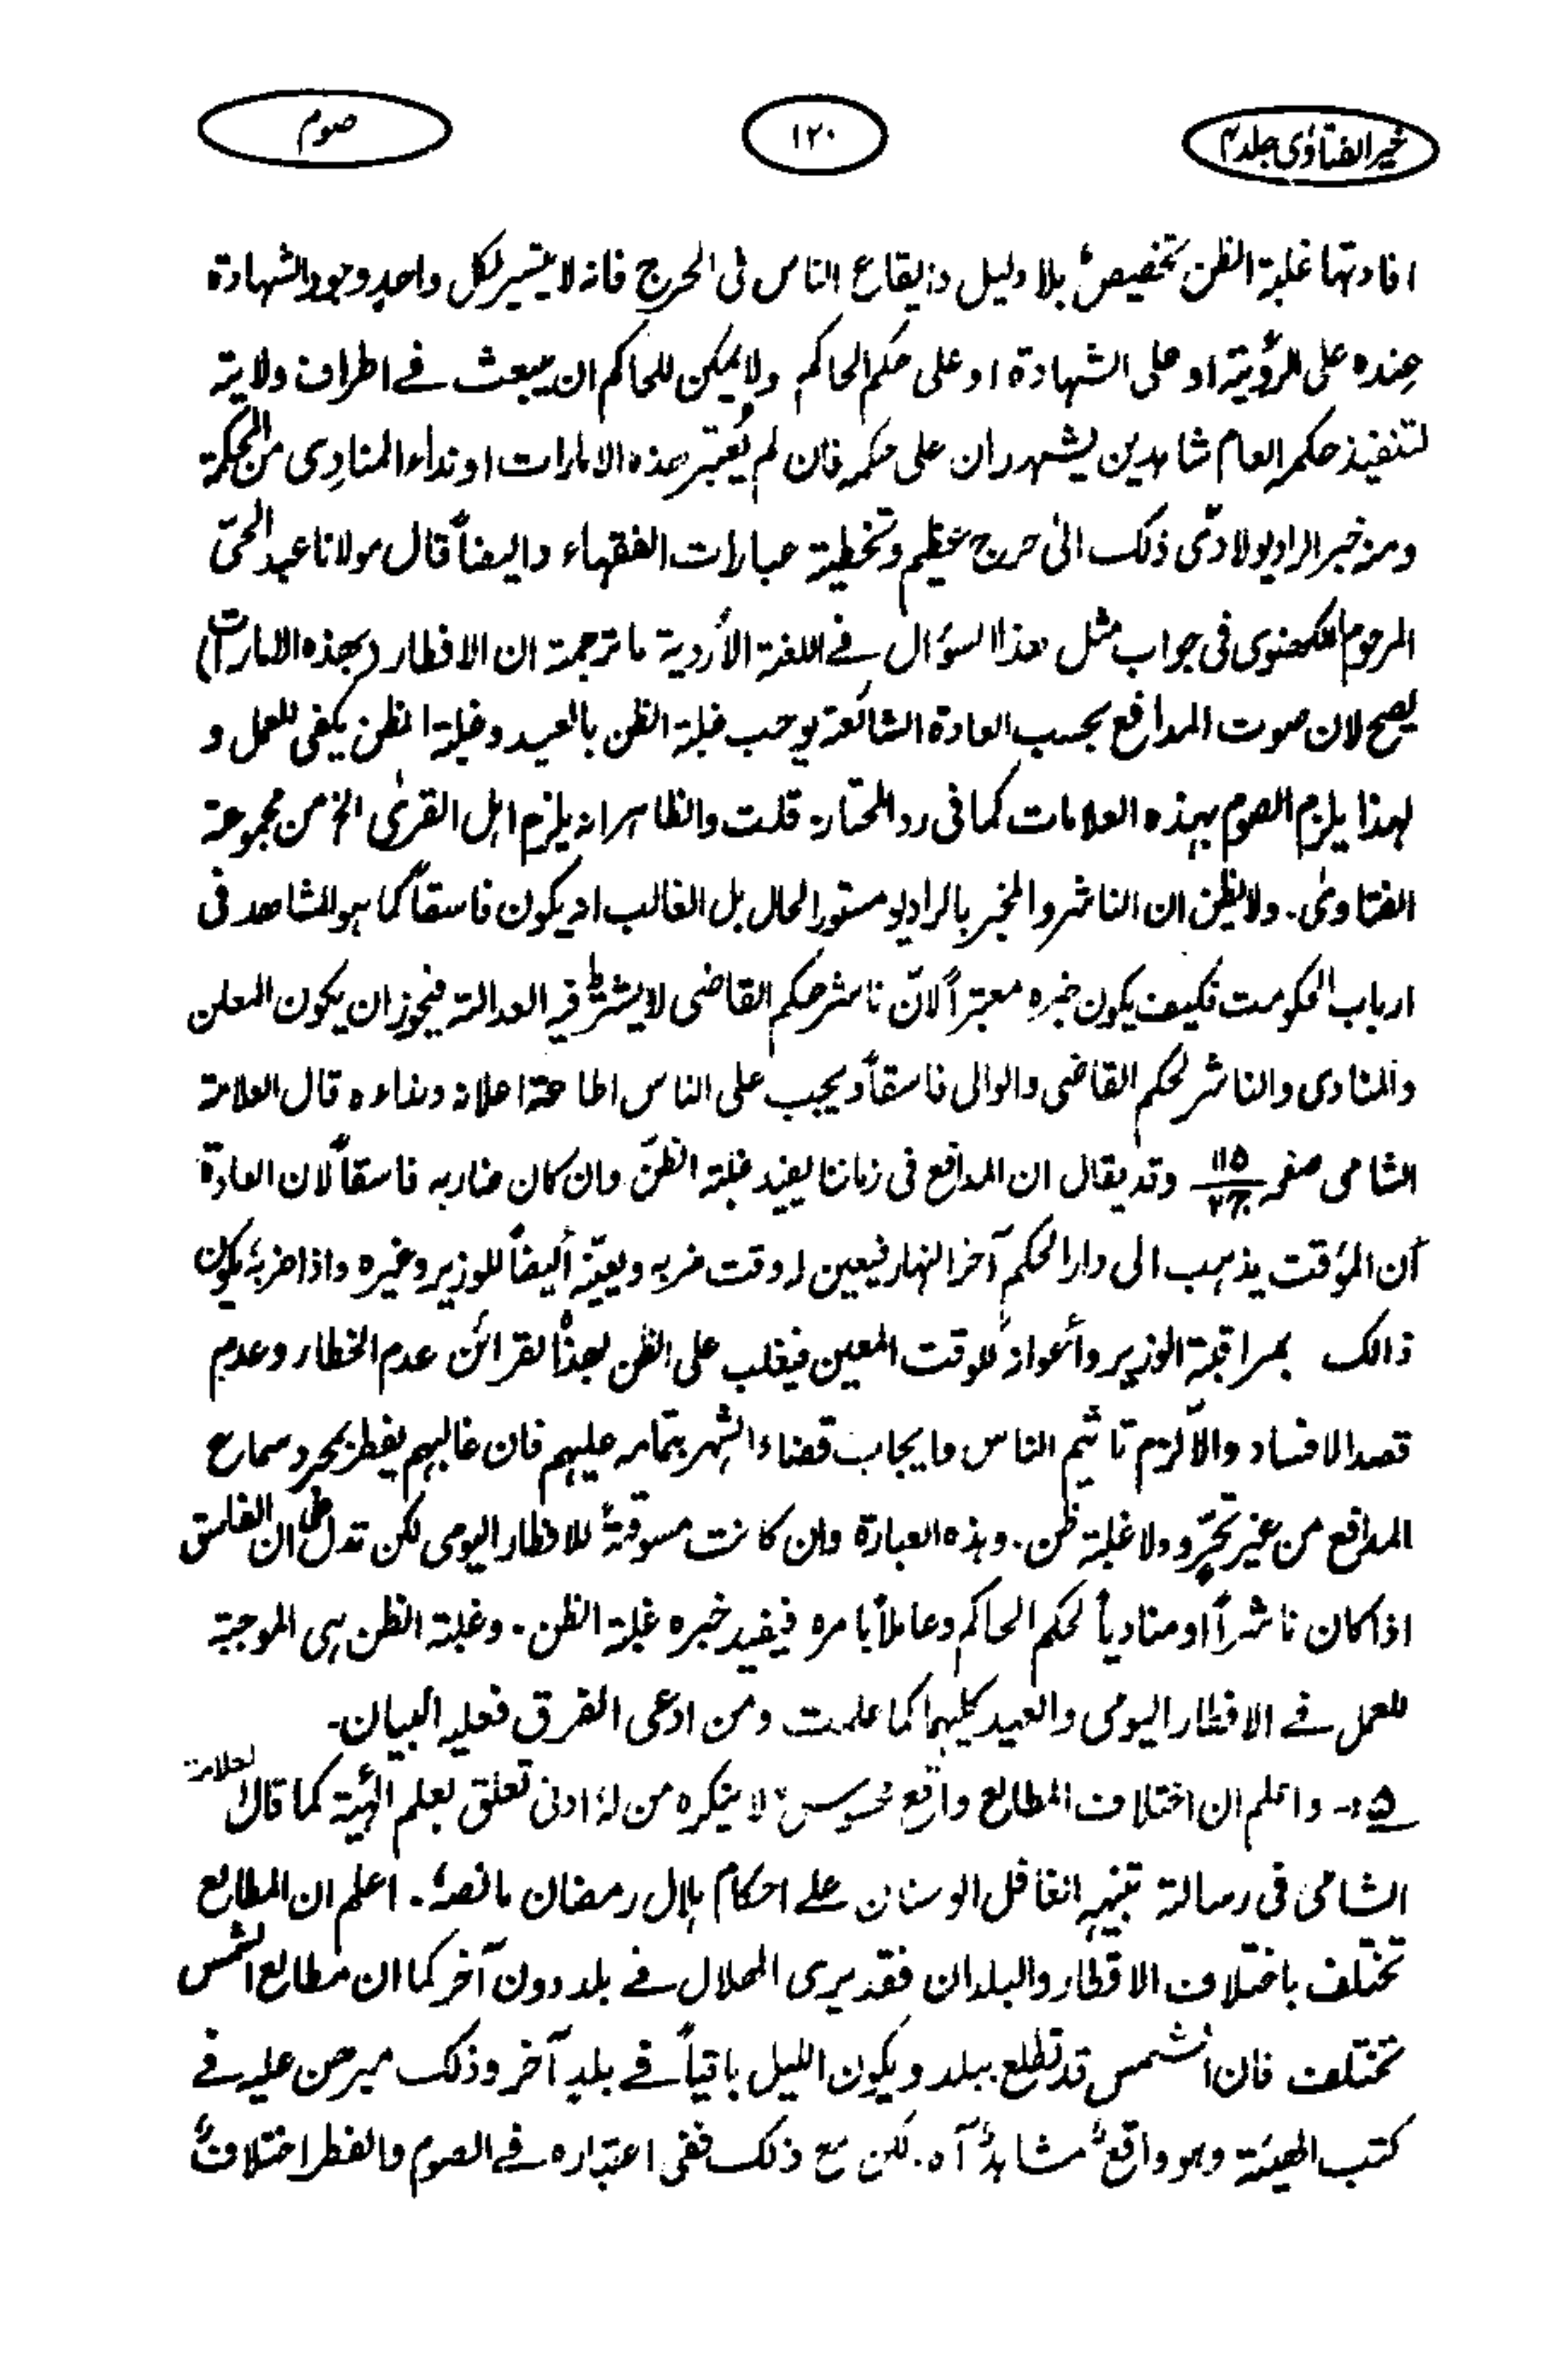 خیر الفتاوٰی جلد ۴
۱۲۰
صوم
افادتها غلبة الظن تخصیصٌ بلا دلیل وایقاع الناس فی الحرج فانه لا یتیسر لکل واحدٍ وجود الشهادة
عنده علی الرؤیة او علی الشهادة او علی حکم الحاکم ولا یمکن للحاکم ان یبعث فی اطراف ولایته
لتنفیذ حکمه العام شاهدین یشهدان علی حکمه فان لم یُعتبر هذه الامارات او نداء المنادِی من المحکمة
ومن خبر الرادیو لادّی ذلک الیٰ حرج عظیم وتخطیة عبارات الفقهاء وایضاً قال مولانا عبد الحیّ
المرحوم اللکھنوی فی جواب مثل هذا السؤال فی اللغة الأردیة ما ترجمة ان الافطار (بهذه الامارات)
یصح لان صوت المدافع بحسب العادة الشائعة یوجب غلبة الظن بالعید وغلبة الظن یکفی للعمل و
لهذا یلزم الصوم بهذه العلامات کما فی رد المحتار۔ قلت والظاهر انه یلزم اهل القریٰ الخ من مجموعة
الفتاویٰ۔ ولا یظن ان الناشر والمخبر بالرادیو مستور الحال بل الغالب انه یکون فاسقاً کما هو المشاهد فی
ارباب الحکومت فکیف یکون خبره معتبراً لانّ ناشر حکم القاضی لا یشترط فیه العدالة فیجوز ان یکون المعلن
والمنادی والناشر لحکم القاضی والوالی فاسقاً ویجب علی الناس اطاعة اعلانه ونداءه قال العلامة
الشامی صفحہ ۱۱۵/ج۲ وقد یقال ان المدافع فی زماننا یفید غلبة الظنّ وان کان ضاربه فاسقاً لان العادة
أن المؤقت یذهب الی دار الحکم آخر النهار فیعین له وقت ضربه ویعیّنه أیضاً للوزیر وغیره واذا ضربهٗ یکون
ذالک بمراقبة الوزیر وأعوانه للوقت المعین فیغلب علی الظن بهذه القرائن عدم الخطار وعدم
قصد الافساد والّا لزم تاثیم الناس وایجاب قضاء الشهر بتمامه علیهم فان غالبهم یفطر بمجرد سماع
المدافع من غیر تحرٍّ ولا غلبة ظن۔ وهذه العبارة وان کانت مسوقةً للافطار الیومی لکن تدل علی ان الفاسق
اذا کان ناشراً او منادیاً لحکم الحاکم وعاملاً بامره فیفید خبره غلبة الظن۔ وغلبة الظن هی الموجبة
للعمل فی الافطار الیومی والعید کلیهما کما علمت ومن ادعی الفرق فعلیه البیان۔
۵:۔ واعلم ان اختلاف المطالع واقع محسوسٌ لا ینکره من لهٗ ادنی تعلق بعلم الهیّة کما قال العلامة
الشامی فی رسالة تنبیه الغافل الوسنان علی احکام هلال رمضان ما نصهٗ۔ اعلم ان المطالع
تختلف باختلاف الاقطار والبلدان فقد یری الهلال فی بلد دون آخر کما ان مطالع الشمس
تختلف فان الشمس قد تطلع ببلد ویکون اللیل باقیاً فی بلدٍ آخر وذلک مبرهن علیه فی
کتب الهیئة وهو واقعٌ مشاهدٌ آه۔ لکن مع ذلک ففی اعتباره فی الصوم والفطر اختلافٌ